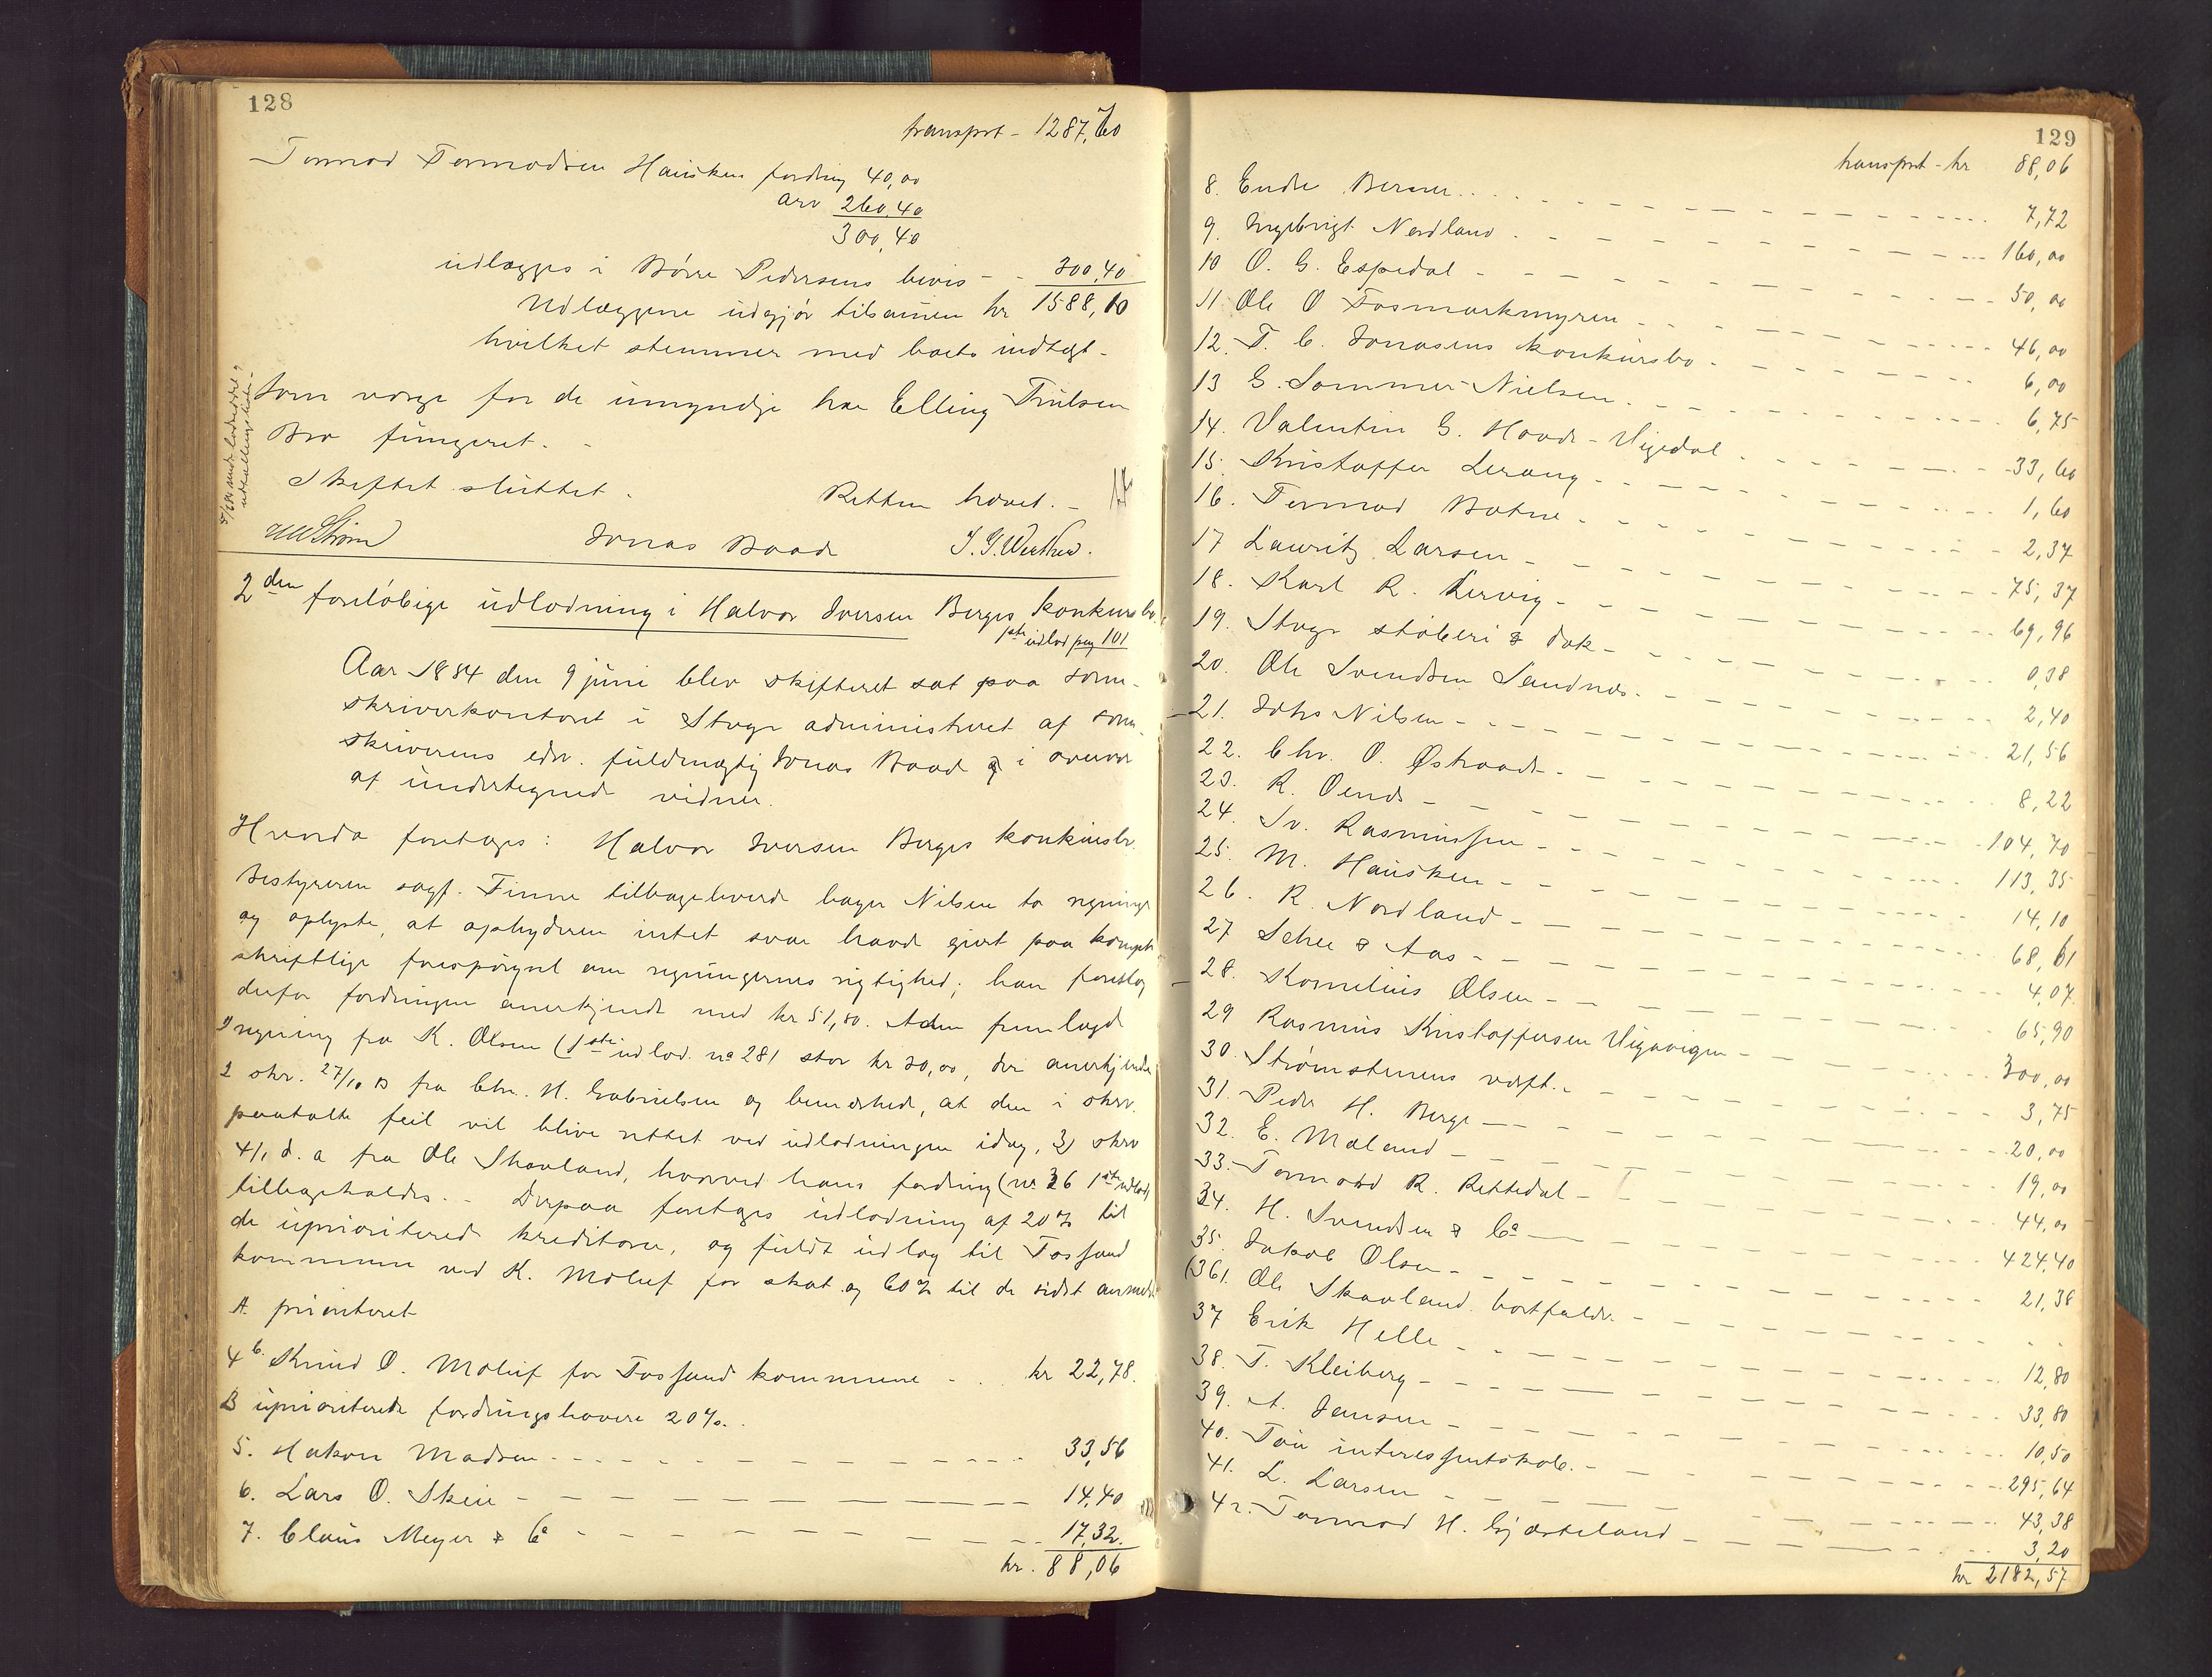 128
transport - 1287,70
Tormod Tormodsen Hausken fordring 40,00
arv 260,40
300,40
udlægges i Børre Pedersens bevis - - 300,40
Udlæggene udgjør tilsamen kr 1588,10
hvilket stemmer med boets indtægt.
Som værge for de umyndige har Elling Trulsen
Bro fungeret. -
Skiftet sluttet. Retten hævet. -
Jonas Baade
2den foreløbige udlodning i Halvor Iversen Berges konkursbo.
1ste udlod pag 101
Aar 1884 den 9 juni blev skifteret sat paa soren-
skriverkontoret i Stvgr administreret af soren-
skriverens edsv. fuldmægtig Jonas Baade i overvær
af undertegnede vidner.
Hvorda foretages: Halvor Iversen Berges konkursbo.
Bestyreren sagf. Finne tilbageleverede bager Nilsen to regninger
og oplyste, at opbyderen intet svar havde givet paa
skriftlige forespørgsel om regningernes rigtighed; han foreslog
derfor fordringen anerkjendt med kr 51,80. Aden fremlagde
1) regning fra K. Olsen (1ste udlod. no 28) stor kr 30,00, der anerkjendes
2 skr. 27/10 83 fra Chr. H. Gabrielsen og bemærkede, at den i skrv.
paatalte feil vil blive rettet ved udlodningen idag, 3) skrv
4/1 d. a fra Ole Skavland, hvorved hans fordring (no 36 1ste udlod)
tilbageholdes. - Derpaa foretages udlodning af 20% til
de uprioriterede kreditorer, og fuldt udlæg til Fossand
kommune ved K. Moluf for skat og 60% til de sidst anmeldte
A. prioriteret
4 b. Knud O. Moluf for Fossand kommune - . kr 22,78.
B uprioriterede fordringshavere 20%.
5. Hakon Madsen - - - 33,56
6. Lars O. Skeie - - - 14,40
7. Claus Meyer & Co - - - 17,32.
kr. 88,06
129
transport - kr 88,06
8. Endre Berner - - - 7,72
9. Ingebrigt Nordland - - - 160,00
10 O. G. Espedal - - - 50,00
11 Ole O Fosmarkmyren - - - 46,00
12. T. C. Jonasens konkursbo - - - 6,00
13 G. Sommer-Nielsen - - - 6,75
14. Valentin G. Hoode-Vigedal - - - 33,60
15. Kristoffer Lerang - - - 1,60
16. Tormod Botne - - - 2,37
17 Lauritz Larsen - - - 75,37
18. Karl R. Kervig - - - 69,96
19. Stvgr støberi & dok - - - 0,38
20. Ole Svendsen Sandnes - - - 2,40
21. Johs Nilsen - - - 21,56
22. Chr. O. Østraadt - - - 8,22
23. R. Oends - - - 104,70
24. Sv. Rasmussen - - - 113,35
25. M. Hausken - - - 14,10
26. R. Nordland - - - 68,61
27 Schee & Aas - - - 4,07.
28. Kornelius Olsen - - - 65,90
29 Rasmus Kristoffersen Vigavigen - - - 300,00
30. Strømstenens værft - - - 3,75
31. Peder H. Berge - - - 20,00
32. E. Mæland - - - 19,00
33. Tormod R. Rettedal - - - 44,00
34. H. Svendsen & Co - - - 424,40
35. Jakob Olsen - - - 21,38
(36). Ole Skavland bortfalder - - -
37 Erik Helle - - - 12,80
38. T. Kleiberg - - - 33,80
39. A. Jansen - - - 10,50
40. Tou interessentskab - - - 295,64
41. L. Larsen - - - 43,38
42. Tormod H. Gjæsteland - - - 3,20
kr 2182,57